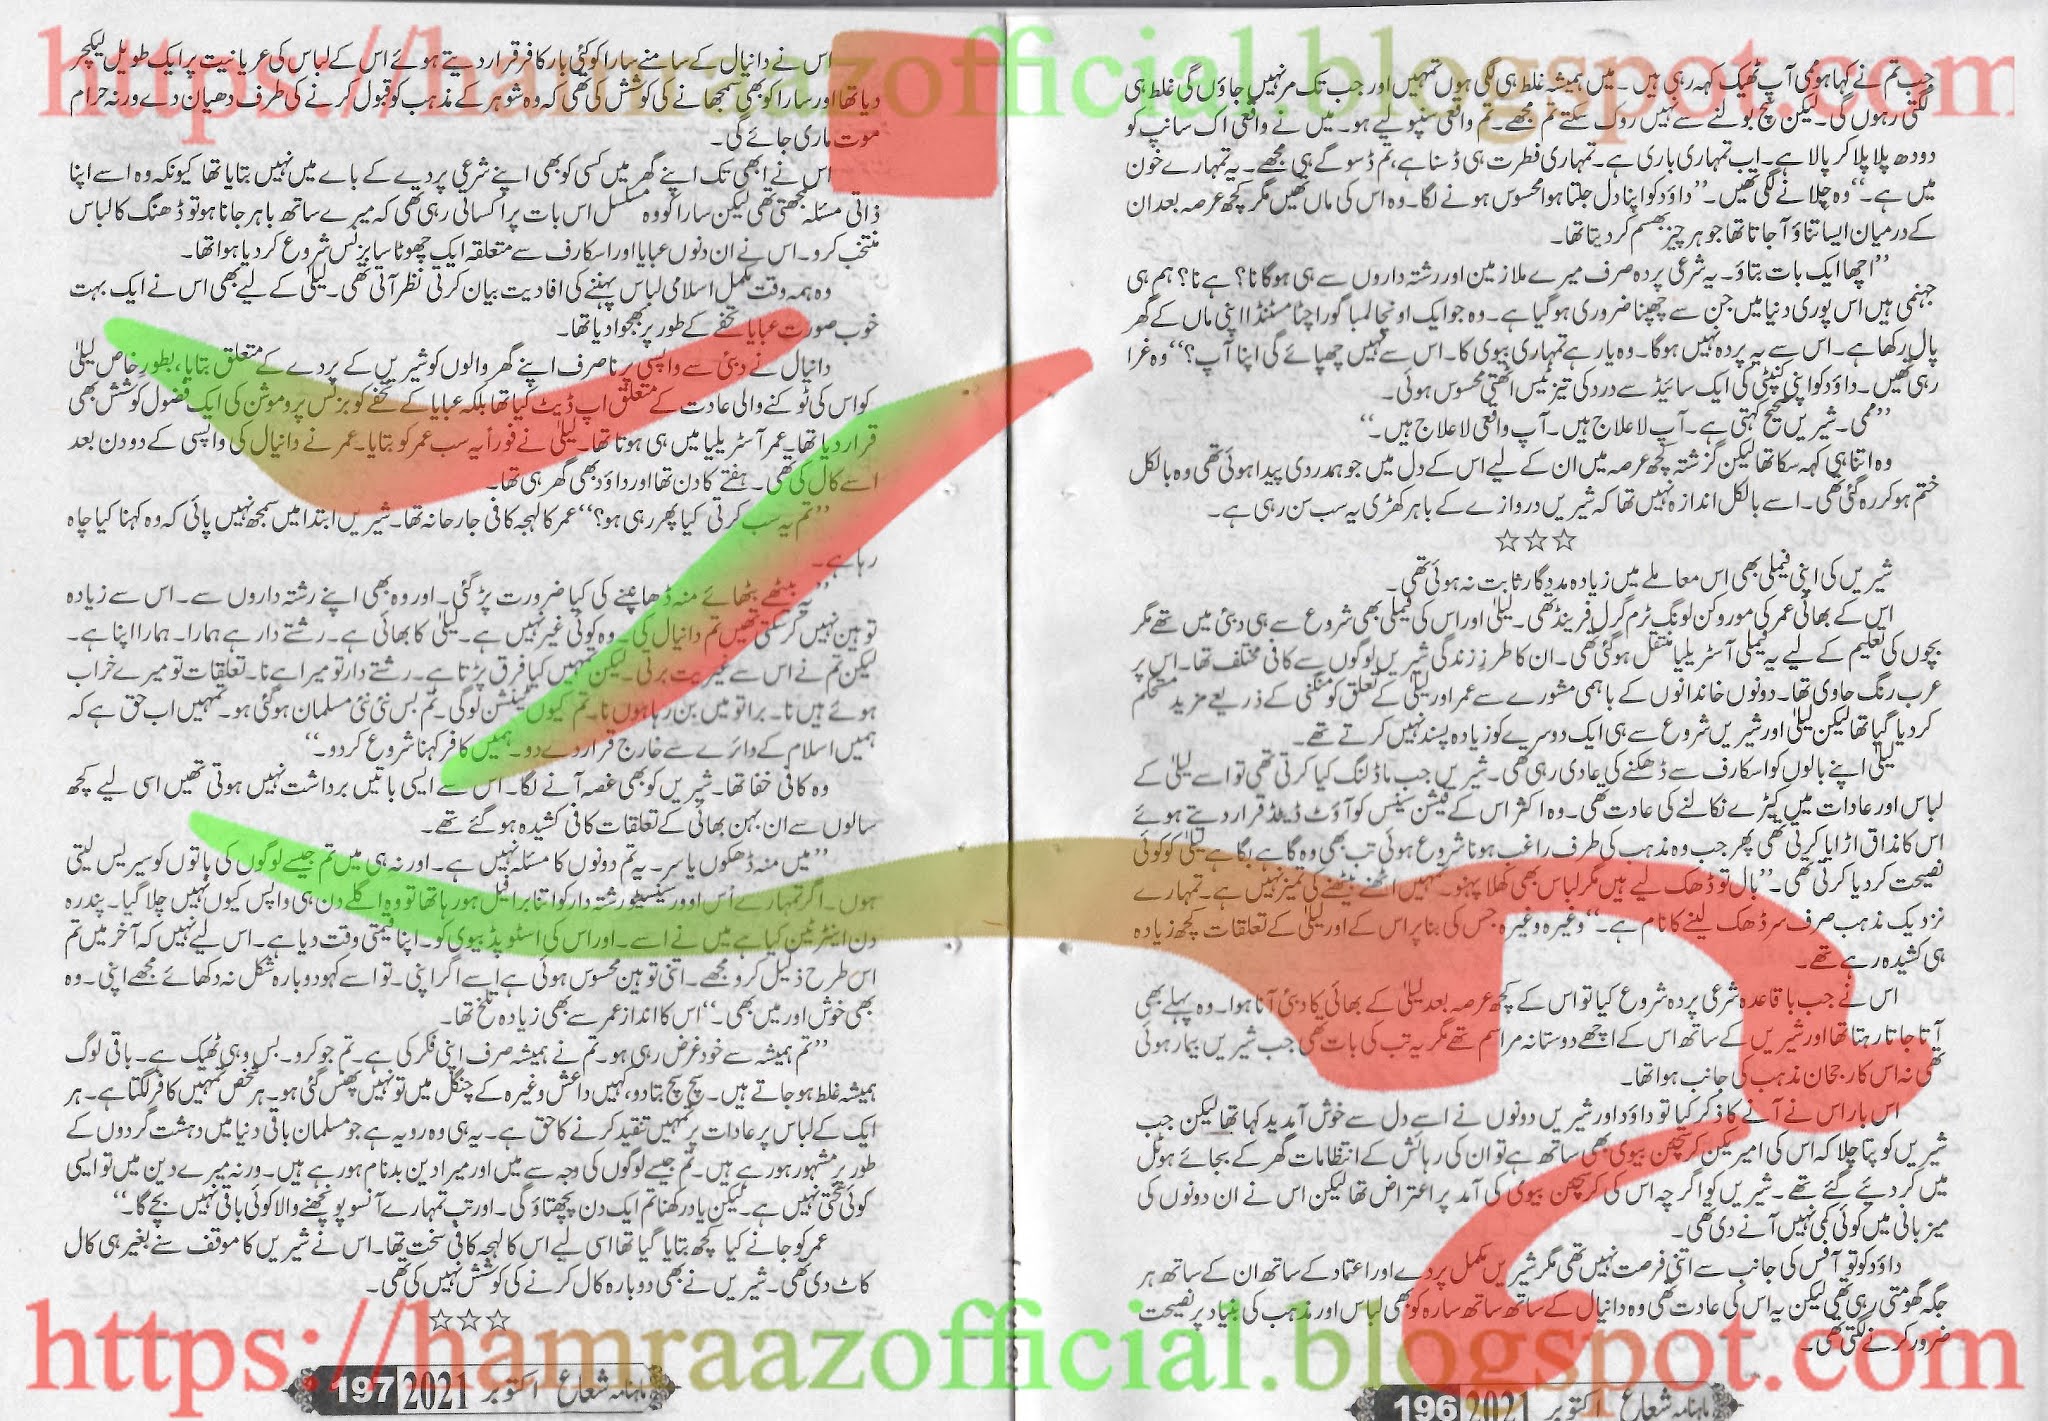 https://hamraazofficial.blogspot.com
جب تم نے کہا ہو ممی آپ ٹھیک کہہ رہی ہیں۔ میں ہمیشہ غلط ہی لگی ہوں تمہیں اور جب تک مر نہیں جاؤں گی غلط ہی
لگتی رہوں گی۔ لیکن سچ بولنے سے نہیں روک سکتے تم مجھے۔ تم واقعی سنپولیے ہو۔ میں نے واقعی اک سانپ کو
دودھ پلا پلا کر پالا ہے۔ اب تمہاری باری ہے۔ تمہاری فطرت ہی ڈسنا ہے، تم ڈسو گے ہی مجھے۔ یہ تمہارے خون
میں ہے۔“ وہ چلانے لگی تھیں۔” داؤد کو اپنا دل جلتا ہوا محسوس ہونے لگا۔ وہ اس کی ماں تھیں مگر کچھ عرصہ بعد ان
کے درمیان ایسا تناؤ آ جاتا تھا جو ہر چیز بھسم کر دیتا تھا۔
”اچھا ایک بات بتاؤ۔ یہ شرعی پردہ صرف میرے ملازمین اور رشتہ داروں سے ہی ہوگا نا؟ ہے نا؟ ہم ہی
جہنمی ہیں اس پوری دنیا میں جن سے چھپنا ضروری ہو گیا ہے۔ وہ جو ایک اونچا لمبا گورا چٹا مسٹنڈا اپنی ماں کے گھر
پال رکھا ہے۔ اس سے یہ پردہ نہیں ہوگا۔ وہ یار ہے تمہاری بیوی کا۔ اس سے نہیں چھپائے گی اپنا آپ؟“ وہ غرا
رہی تھیں۔ داؤد کو اپنی کنپٹی کی ایک سائیڈ سے درد کی تیز ٹیس اٹھتی محسوس ہوئی۔
”ممی۔ شیریں صحیح کہتی ہے۔ آپ لا علاج ہیں۔ آپ واقعی لا علاج ہیں۔“
وہ اتنا ہی کہہ سکا تھا لیکن گزشتہ کچھ عرصہ میں ان کے لیے اس کے دل میں جو ہمدردی پیدا ہوئی تھی وہ بالکل
ختم ہو کر رہ گئی تھی۔ اسے بالکل اندازہ نہیں تھا کہ شیریں دروازے کے باہر کھڑی یہ سب سن رہی ہے۔
☆☆☆
شیریں کی اپنی فیملی بھی اس معاملے میں زیادہ مددگار ثابت نہ ہوئی تھی۔
اس کے بھائی عمر کی موروکن لونگ ٹرم گرل فرینڈ تھی۔ لیلیٰ اور اس کی فیملی بھی شروع سے ہی دبئی میں تھے مگر
بچوں کی تعلیم کے لیے یہ فیملی آسٹریلیا منتقل ہو گئی تھی۔ ان کا طرز زندگی شیریں لوگوں سے کافی مختلف تھا۔ اس پر
عرب رنگ حاوی تھا۔ دونوں خاندانوں کے باہمی مشورے سے عمر اور لیلیٰ کے تعلق کو منگنی کے ذریعے مزید مستحکم
کر دیا گیا تھا لیکن لیلیٰ اور شیریں شروع سے ہی ایک دوسرے کو زیادہ پسند نہیں کرتے تھے۔
لیلیٰ اپنے بالوں کو اسکارف سے ڈھکنے کی عادی رہی تھی۔ شیریں جب ماڈلنگ کیا کرتی تھی تو اسے لیلیٰ کے
لباس اور عادات میں کیڑے نکالنے کی عادت تھی۔ وہ اکثر اس کے فیشن سینس کو آؤٹ ڈیٹڈ قرار دیتے ہوئے
اس کا مذاق اڑایا کرتی تھی پھر جب وہ مذہب کی طرف راغب ہونا شروع ہوئی تب بھی وہ گاہے بگاہے لیلیٰ کو کوئی
نصیحت کر دیا کرتی تھی۔” بال تو ڈھک لیے ہیں مگر لباس بھی کھلا پہنو۔ تمہیں اٹھنے بیٹھنے کی تمیز نہیں ہے۔ تمہارے
نزدیک مذہب صرف سر ڈھک لینے کا نام ہے۔“ وغیرہ وغیرہ جس کی بنا پر اس کے اور لیلیٰ کے تعلقات کچھ زیادہ
ہی کشیدہ رہے تھے۔
اس نے جب باقاعدہ شرعی پردہ شروع کیا تو اس کے کچھ عرصہ بعد لیلیٰ کے بھائی کا دبئی آنا ہوا۔ وہ پہلے بھی
آتا جاتا رہتا تھا اور شیریں کے ساتھ اس کے اچھے دوستانہ مراسم تھے مگر یہ تب کی بات تھی جب شیریں بیمار ہوئی
تھی نہ اس کا رجحان مذہب کی جانب ہوا تھا۔
اس بار اس نے آنے کا ذکر کیا تو داؤد اور شیریں دونوں نے اسے دل سے خوش آمدید کہا تھا لیکن جب
شیریں کو پتا چلا کہ اس کی امیریکن کرسچن بیوی بھی ساتھ ہے تو ان کی رہائش کے انتظامات گھر کے بجائے ہوٹل
میں کر دیئے گئے تھے۔ شیریں کو اگرچہ اس کی کرسچن بیوی کی آمد پر اعتراض تھا لیکن اس نے ان دونوں کی
میزبانی میں کوئی کمی نہیں آنے دی تھی۔
داؤد کو تو آفس کی جانب سے اتنی فرصت نہیں تھی مگر شیریں مکمل پردے اور اعتماد کے ساتھ ان کے ساتھ ہر
جگہ گھومتی رہی تھی لیکن یہ اس کی عادت تھی وہ دانیال کے ساتھ ساتھ سارہ کو بھی لباس اور مذہب کی بنیاد پر نصیحت
ضرور کرنے لگتی تھی۔
ماہنامہ شعاع اکتوبر 2021 196
اس نے دانیال کے سامنے سارا کو کئی بار کافر قرار دیتے ہوئے اس کے لباس کی عریانیت پر ایک طویل لیکچر
دیا تھا اور سارا کو بھی سمجھانے کی کوشش کی تھی کہ وہ شوہر کے مذہب کو قبول کرنے کی طرف دھیان دے ورنہ حرام
موت ماری جائے گی۔
اس نے ابھی تک اپنے گھر میں کسی کو بھی اپنے شرعی پردے کے بابے میں نہیں بتایا تھا کیونکہ وہ اسے اپنا
ذاتی مسئلہ سمجھتی تھی لیکن سارا کو وہ مسلسل اس بات پر اکساتی رہی تھی کہ میرے ساتھ باہر جانا ہو تو ڈھنگ کا لباس
منتخب کرو۔ اس نے ان دنوں عبایا اور اسکارف سے متعلقہ ایک چھوٹا سا بزنس شروع کر دیا ہوا تھا۔
وہ ہمہ وقت مکمل اسلامی لباس پہننے کی افادیت بیان کرتی نظر آتی تھی۔ لیلیٰ کے لیے بھی اس نے ایک بہت
خوب صورت عبایا تحفے کے طور پر بھجوا دیا تھا۔
دانیال نے دبئی سے واپسی پر نا صرف اپنے گھر والوں کو شیریں کے پردے کے متعلق بتایا، بطور خاص لیلیٰ
کو اس کی ٹوکنے والی عادت کے متعلق اپ ڈیٹ کیا تھا بلکہ عبایا کے تحفے کو بزنس پروموشن کی ایک فضول کوشش بھی
قرار دیا تھا۔ عمر آسٹریلیا میں ہی ہوتا تھا۔ لیلیٰ نے فوراً یہ سب عمر کو بتایا۔ عمر نے دانیال کی واپسی کے دو دن بعد
اسے کال کی تھی۔ ہفتے کا دن تھا اور داؤد بھی گھر ہی تھا۔
”تم یہ سب کرتی کیا پھر رہی ہو؟“ عمر کا لہجہ کافی جارحانہ تھا۔ شیریں ابتدا میں سمجھ نہیں پائی کہ وہ کہنا کیا چاہ
رہا ہے۔
”بیٹھے بٹھائے منہ ڈھانپنے کی کیا ضرورت پڑ گئی۔ اور وہ بھی اپنے رشتہ داروں سے۔ اس سے زیادہ
توہین نہیں کر سکتی تھیں تم دانیال کی۔ وہ کوئی غیر نہیں ہے۔ لیلیٰ کا بھائی ہے۔ رشتے دار ہے ہمارا۔ ہمارا اپنا ہے۔
لیکن تم نے اس سے غیریت برتی۔ لیکن تمہیں کیا فرق پڑتا ہے۔ رشتے دار تو میرا ہے نا۔ تعلقات تو میرے خراب
ہوئے ہیں نا۔ برا تو میں بن رہا ہوں نا۔ تم کیوں ٹینشن لو گی۔ تم بس نئی نئی مسلمان ہو گئی ہو۔ تمہیں اب حق ہے کہ
ہمیں اسلام کے دائرے سے خارج قرار دے دو۔ ہمیں کافر کہنا شروع کر دو۔“
وہ کافی خفا تھا۔ شیریں کو بھی غصہ آنے لگا۔ اس سے ایسی باتیں برداشت نہیں ہوتی تھیں اسی لیے کچھ
سالوں سے ان بہن بھائی کے تعلقات کافی کشیدہ ہو گئے تھے۔
”میں منہ ڈھکوں یا سر۔ یہ تم دونوں کا مسئلہ نہیں ہے۔ اور نہ ہی میں تم جیسے لوگوں کی باتوں کو سریس لیتی
ہوں۔ اگر تمہارے اس اوور سینسیٹیو رشتہ دار کو اتنا برا فیل ہو رہا تھا تو وہ اگلے دن ہی واپس کیوں نہیں چلا گیا۔ پندرہ
دن انٹرٹین کیا ہے میں نے اسے۔ اور اس کی اسٹوپڈ بیوی کو۔ اپنا قیمتی وقت دیا ہے۔ اس لیے نہیں کہ آخر میں تم
اس طرح ذلیل کرو مجھے۔ اتنی توہین محسوس ہوئی ہے اسے اگر اپنی۔ تو اسے کہو دوبارہ شکل نہ دکھائے مجھے اپنی۔ وہ
بھی خوش اور میں بھی۔“ اس کا انداز عمر سے بھی زیادہ تلخ تھا۔
”تم ہمیشہ سے خود غرض رہی ہو۔ تم نے ہمیشہ صرف اپنی فکر کی ہے۔ تم جو کرو۔ بس وہی ٹھیک ہے۔ باقی لوگ
ہمیشہ غلط ہو جاتے ہیں۔ سچ سچ بتا دو، کہیں داعش وغیرہ کے چنگل میں تو نہیں پھنس گئی ہو۔ ہر شخص تمہیں کافر لگتا ہے۔ ہر
ایک کے لباس پر عادات پر تمہیں تنقید کرنے کا حق ہے۔ یہ ہی وہ رویہ ہے جو مسلمان باقی دنیا میں دہشت گردوں کے
طور پر مشہور ہو رہے ہیں۔ تم جیسے لوگوں کی وجہ سے میں اور میرا دین بدنام ہو رہے ہیں۔ ورنہ میرے دین میں تو ایسی
کوئی سختی نہیں ہے۔ لیکن یاد رکھنا تم ایک دن پچھتاؤ گی۔ اور تب تمہارے آنسو پونچھنے والا کوئی باقی نہیں بچے گا۔“
عمر کو جانے کیا کچھ بتایا گیا تھا اسی لیے اس کا لہجہ کافی سخت تھا۔ اس نے شیریں کا موقف سنے بغیر ہی کال
کاٹ دی تھی۔ شیریں نے بھی دوبارہ کال کرنے کی کوشش نہیں کی تھی۔
☆☆☆
ماہنامہ شعاع اکتوبر 2021 197
https://hamraazofficial.blogspot.com